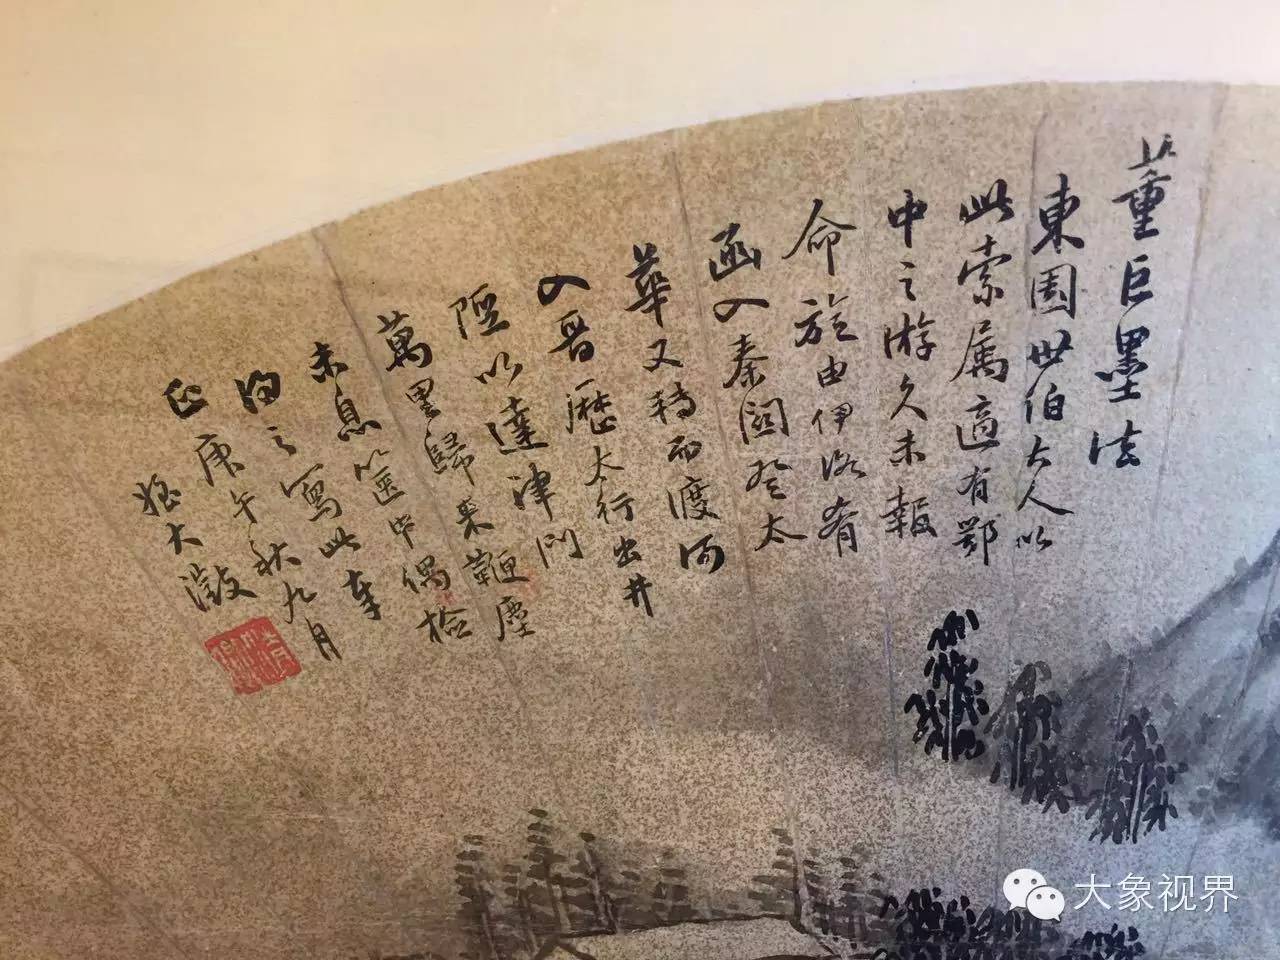 董巨墨法
東園世伯大人以
此索属適有鄂
中之游久未報
命旋由伊洛殽
函入秦關登太
華又轉而渡河
入晋歷太行出井
陘以達津門
萬里歸来鞭塵
未息箧中偶檢
得之寫此奉
正庚午秋九月
姪大澂
大象视界